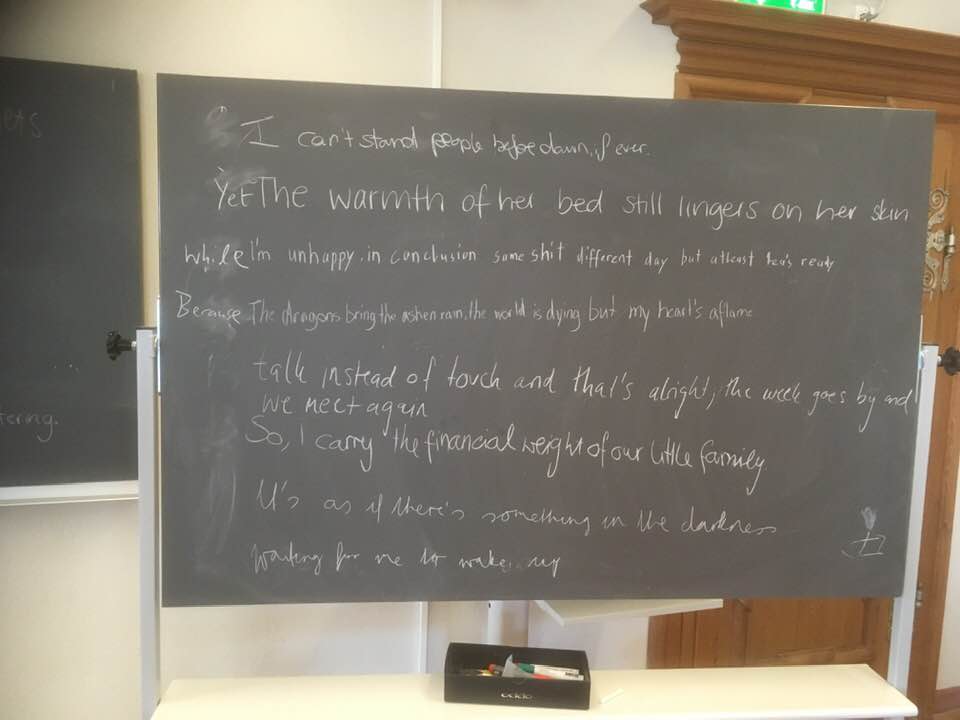 ets
tering.
I can't stand people before dawn, if ever.
Yet The warmth of her bed still lingers on her skin
While I'm unhappy. in conclusion same shit different day but atleast tea's ready
Because The dragons bring the ashen rain, the world is dying but my heart's aflame
talk instead of touch and that's alright, the week goes by and
we meet again
So, I carry the financial weight of our little family
It's as if there's something in the darkness
waiting for me to wake up